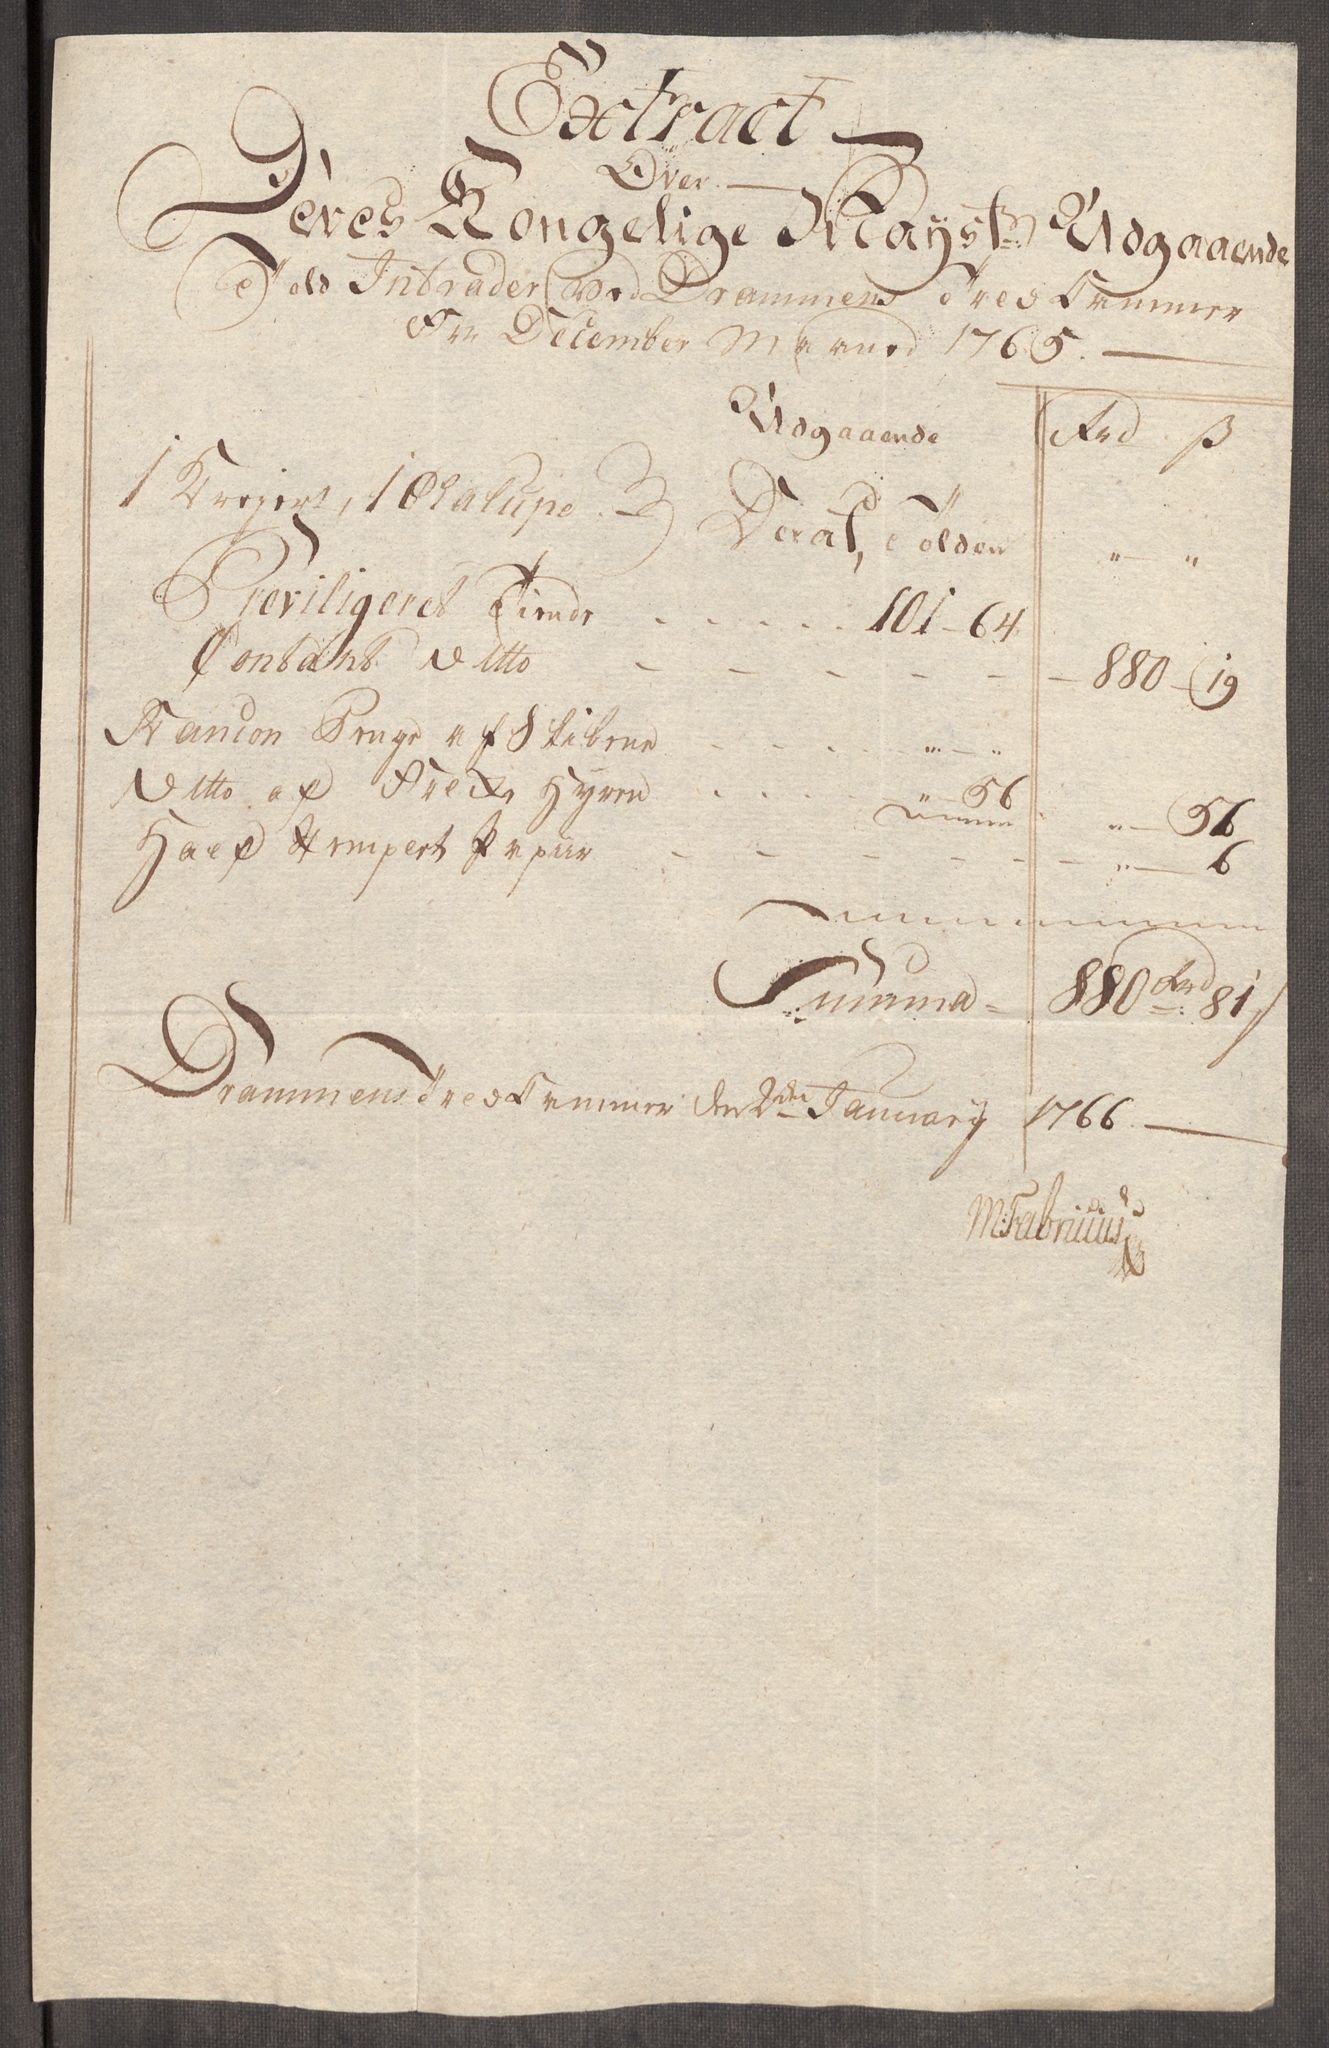 Extract
Over
Deres Kongelige Mayst:s Udgaaende
Told Intrader Ved Drammens Told Cammer
For December Maaned 1765.
Udgaaende Rd ß
1 Krejert, 1 Chalupe Deraf, Tolden " — "
Previligeret Tiende . . . . . 101 - 64
Contant Ditto - - - - - - 880 - 19
Rancon Penge af Skibene . . . . " — "
Ditto af Folckets Hyren . . . . " — 56 " — 56
Item Stemplet Papiir - - - - - - " — 6
Summa = 880 Rd 81 ß
Drammens Told Cammer den 2den January 1766
M: Fabritius